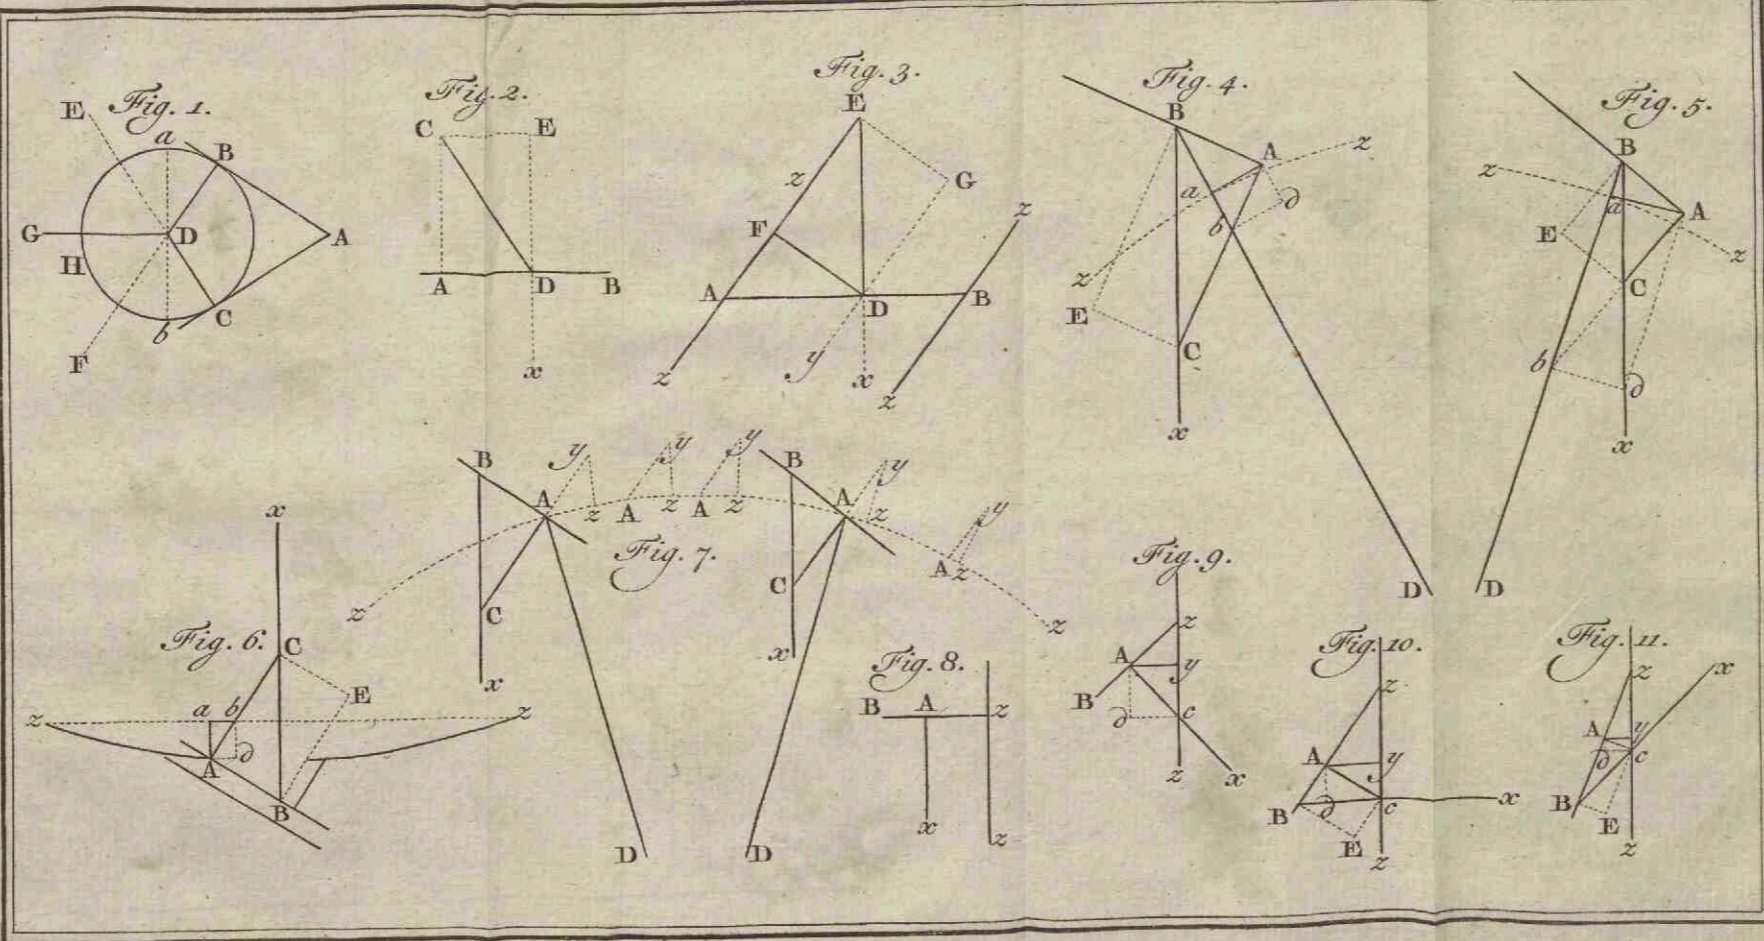 Fig. 1.
E
a
B
G
D
A
H
C
b
F
Fig. 2.
C E
A D B
x
Fig. 3.
E
z G
F z
A D B
y x
z z
Fig. 4.
B
A z
a ∂
b
z
E
C
x
D
Fig. 5.
B
z
a A
E
z
C
b ∂
x
D
Fig. 6.
x
C
E
z a b z
∂
A
B
Fig. 7.
B y y y B y
A z A z A z A z y
A z
C C
z z
x x
D D
Fig. 8.
B A z
x z
Fig. 9.
z
A y
B
∂ c
z x
Fig. 10.
z
A y
∂ c x
B
E z
Fig. 11.
z x
A y
∂ c
B
E
z